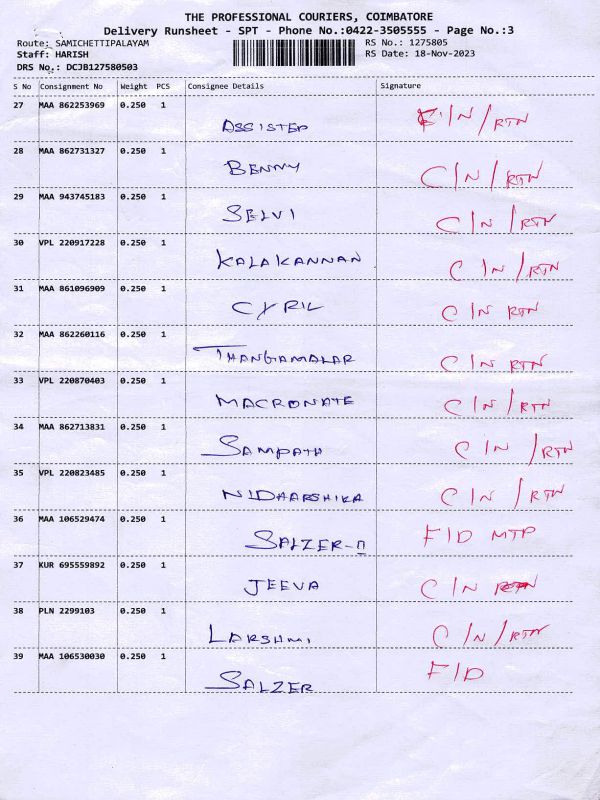 THE PROFESSIONAL COURIERS, COIMBATORE
Delivery Runsheet - SPT - Phone No.:0422-3505555 - Page No.:3
Route: SAMICHETTIPALAYAM RS No.: 1275805
Staff: HARISH RS Date: 18-Nov-2023
DRS No.: DCJB127580503
S No Consignment No Weight PCS Consignee Details Signature
27 MAA 862253969 0.250 1
ASSISTED C/N/RTN
28 MAA 862731327 0.250 1
BENNY C/N/RTN
29 MAA 943745183 0.250 1
SELVI C/N/RTN
30 VPL 220917228 0.250 1
KALAKANNAN C IN/RTN
31 MAA 861096909 0.250 1
CYRIL C IN RTN
32 MAA 862260116 0.250 1
THANGAMALAR C IN RTN
33 VPL 220870403 0.250 1
MACRONATE C/N/RTN
34 MAA 862713831 0.250 1
SAMPATH C IN /RTN
35 VPL 220823485 0.250 1
NIDAARSHIKA C IN /RTN
36 MAA 106529474 0.250 1
SALZER-II F/D MTP
37 KUR 695559892 0.250 1
JEEVA C/N RTN
38 PLN 2299103 0.250 1
LAKSHMI C/N/RTN
39 MAA 106530030 0.250 1
SALZER F/D